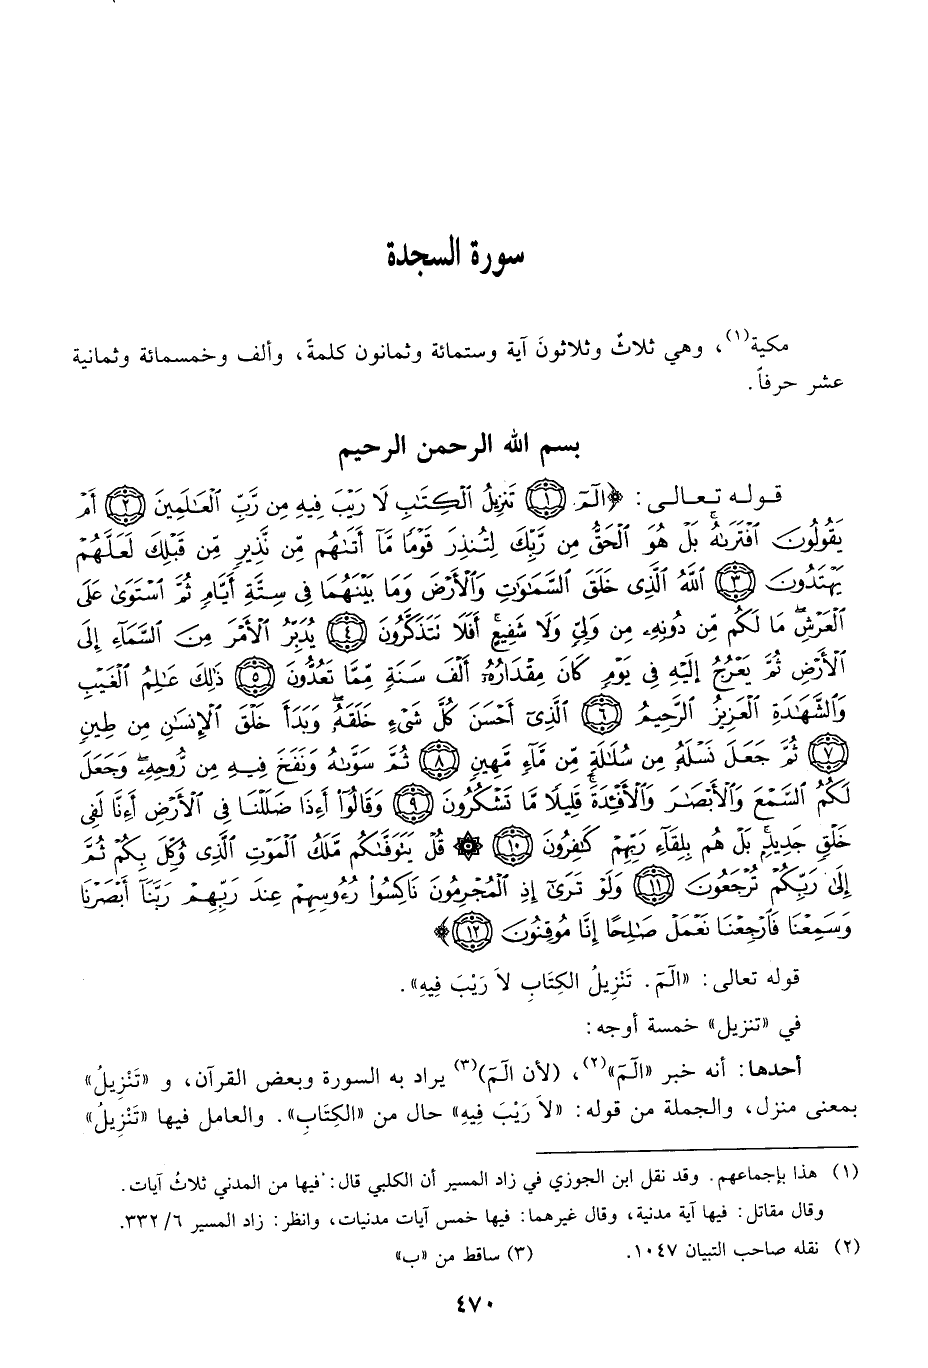 سورة السجدة
مكية(١)، وهي ثلاثٌ وثلاثونَ آية وستمائة وثمانون كلمةً، وألف وخمسمائة وثمانية
عشر حرفاً.
بسم الله الرحمن الرحيم
قوله تعالى: ﴿الٓمٓ ۝١ تَنزِيلُ ٱلۡكِتَٰبِ لَا رَيۡبَ فِيهِ مِن رَّبِّ ٱلۡعَٰلَمِينَ ۝٢ أَمۡ
يَقُولُونَ ٱفۡتَرَىٰهُۚ بَلۡ هُوَ ٱلۡحَقُّ مِن رَّبِّكَ لِتُنذِرَ قَوۡمٗا مَّآ أَتَىٰهُم مِّن نَّذِيرٖ مِّن قَبۡلِكَ لَعَلَّهُمۡ
يَهۡتَدُونَ ۝٣ ٱللَّهُ ٱلَّذِي خَلَقَ ٱلسَّمَٰوَٰتِ وَٱلۡأَرۡضَ وَمَا بَيۡنَهُمَا فِي سِتَّةِ أَيَّامٖ ثُمَّ ٱسۡتَوَىٰ عَلَى
ٱلۡعَرۡشِۖ مَا لَكُم مِّن دُونِهِۦ مِن وَلِيّٖ وَلَا شَفِيعٍۚ أَفَلَا تَتَذَكَّرُونَ ۝٤ يُدَبِّرُ ٱلۡأَمۡرَ مِنَ ٱلسَّمَآءِ إِلَى
ٱلۡأَرۡضِ ثُمَّ يَعۡرُجُ إِلَيۡهِ فِي يَوۡمٖ كَانَ مِقۡدَارُهُۥٓ أَلۡفَ سَنَةٖ مِّمَّا تَعُدُّونَ ۝٥ ذَٰلِكَ عَٰلِمُ ٱلۡغَيۡبِ
وَٱلشَّهَٰدَةِ ٱلۡعَزِيزُ ٱلرَّحِيمُ ۝٦ ٱلَّذِيٓ أَحۡسَنَ كُلَّ شَيۡءٍ خَلَقَهُۥۖ وَبَدَأَ خَلۡقَ ٱلۡإِنسَٰنِ مِن طِينٖ
۝٧ ثُمَّ جَعَلَ نَسۡلَهُۥ مِن سُلَٰلَةٖ مِّن مَّآءٖ مَّهِينٖ ۝٨ ثُمَّ سَوَّىٰهُ وَنَفَخَ فِيهِ مِن رُّوحِهِۦۖ وَجَعَلَ
لَكُمُ ٱلسَّمۡعَ وَٱلۡأَبۡصَٰرَ وَٱلۡأَفۡـِٔدَةَۚ قَلِيلٗا مَّا تَشۡكُرُونَ ۝٩ وَقَالُوٓاْ أَءِذَا ضَلَلۡنَا فِي ٱلۡأَرۡضِ أَءِنَّا لَفِي
خَلۡقٖ جَدِيدِۭۚ بَلۡ هُم بِلِقَآءِ رَبِّهِمۡ كَٰفِرُونَ ۝١٠ ۞ قُلۡ يَتَوَفَّىٰكُم مَّلَكُ ٱلۡمَوۡتِ ٱلَّذِي وُكِّلَ بِكُمۡ ثُمَّ
إِلَىٰ رَبِّكُمۡ تُرۡجَعُونَ ۝١١ وَلَوۡ تَرَىٰٓ إِذِ ٱلۡمُجۡرِمُونَ نَاكِسُواْ رُءُوسِهِمۡ عِندَ رَبِّهِمۡ رَبَّنَآ أَبۡصَرۡنَا
وَسَمِعۡنَا فَٱرۡجِعۡنَا نَعۡمَلۡ صَٰلِحًا إِنَّا مُوقِنُونَ ۝١٢﴾
قوله تعالى: «الٓمٓ. تَنْزِيلُ الكِتَابِ لاَ رَيْبَ فِيهِ».
في «تنزيل» خمسة أوجه:
أحدها: أنه خبر «الٓمٓ»(٢)، (لأن الٓمٓ)(٣) يراد به السورة وبعض القرآن، و «تَنْزِيلُ»
بمعنى منزل، والجملة من قوله: «لاَ رَيْبَ فِيهِ» حال من «الكِتَابِ». والعامل فيها «تَنْزِيلُ»
(١) هذا بإجماعهم. وقد نقل ابن الجوزي في زاد المسير أن الكلبي قال: فيها من المدني ثلاثُ آيات.
وقال مقاتل: فيها آية مدنية، وقال غيرهما: فيها خمس آيات مدنيات، وانظر: زاد المسير ٦/ ٣٣٢.
(٢) نقله صاحب التبيان ١٠٤٧. (٣) ساقط من «ب»
٤٧٠